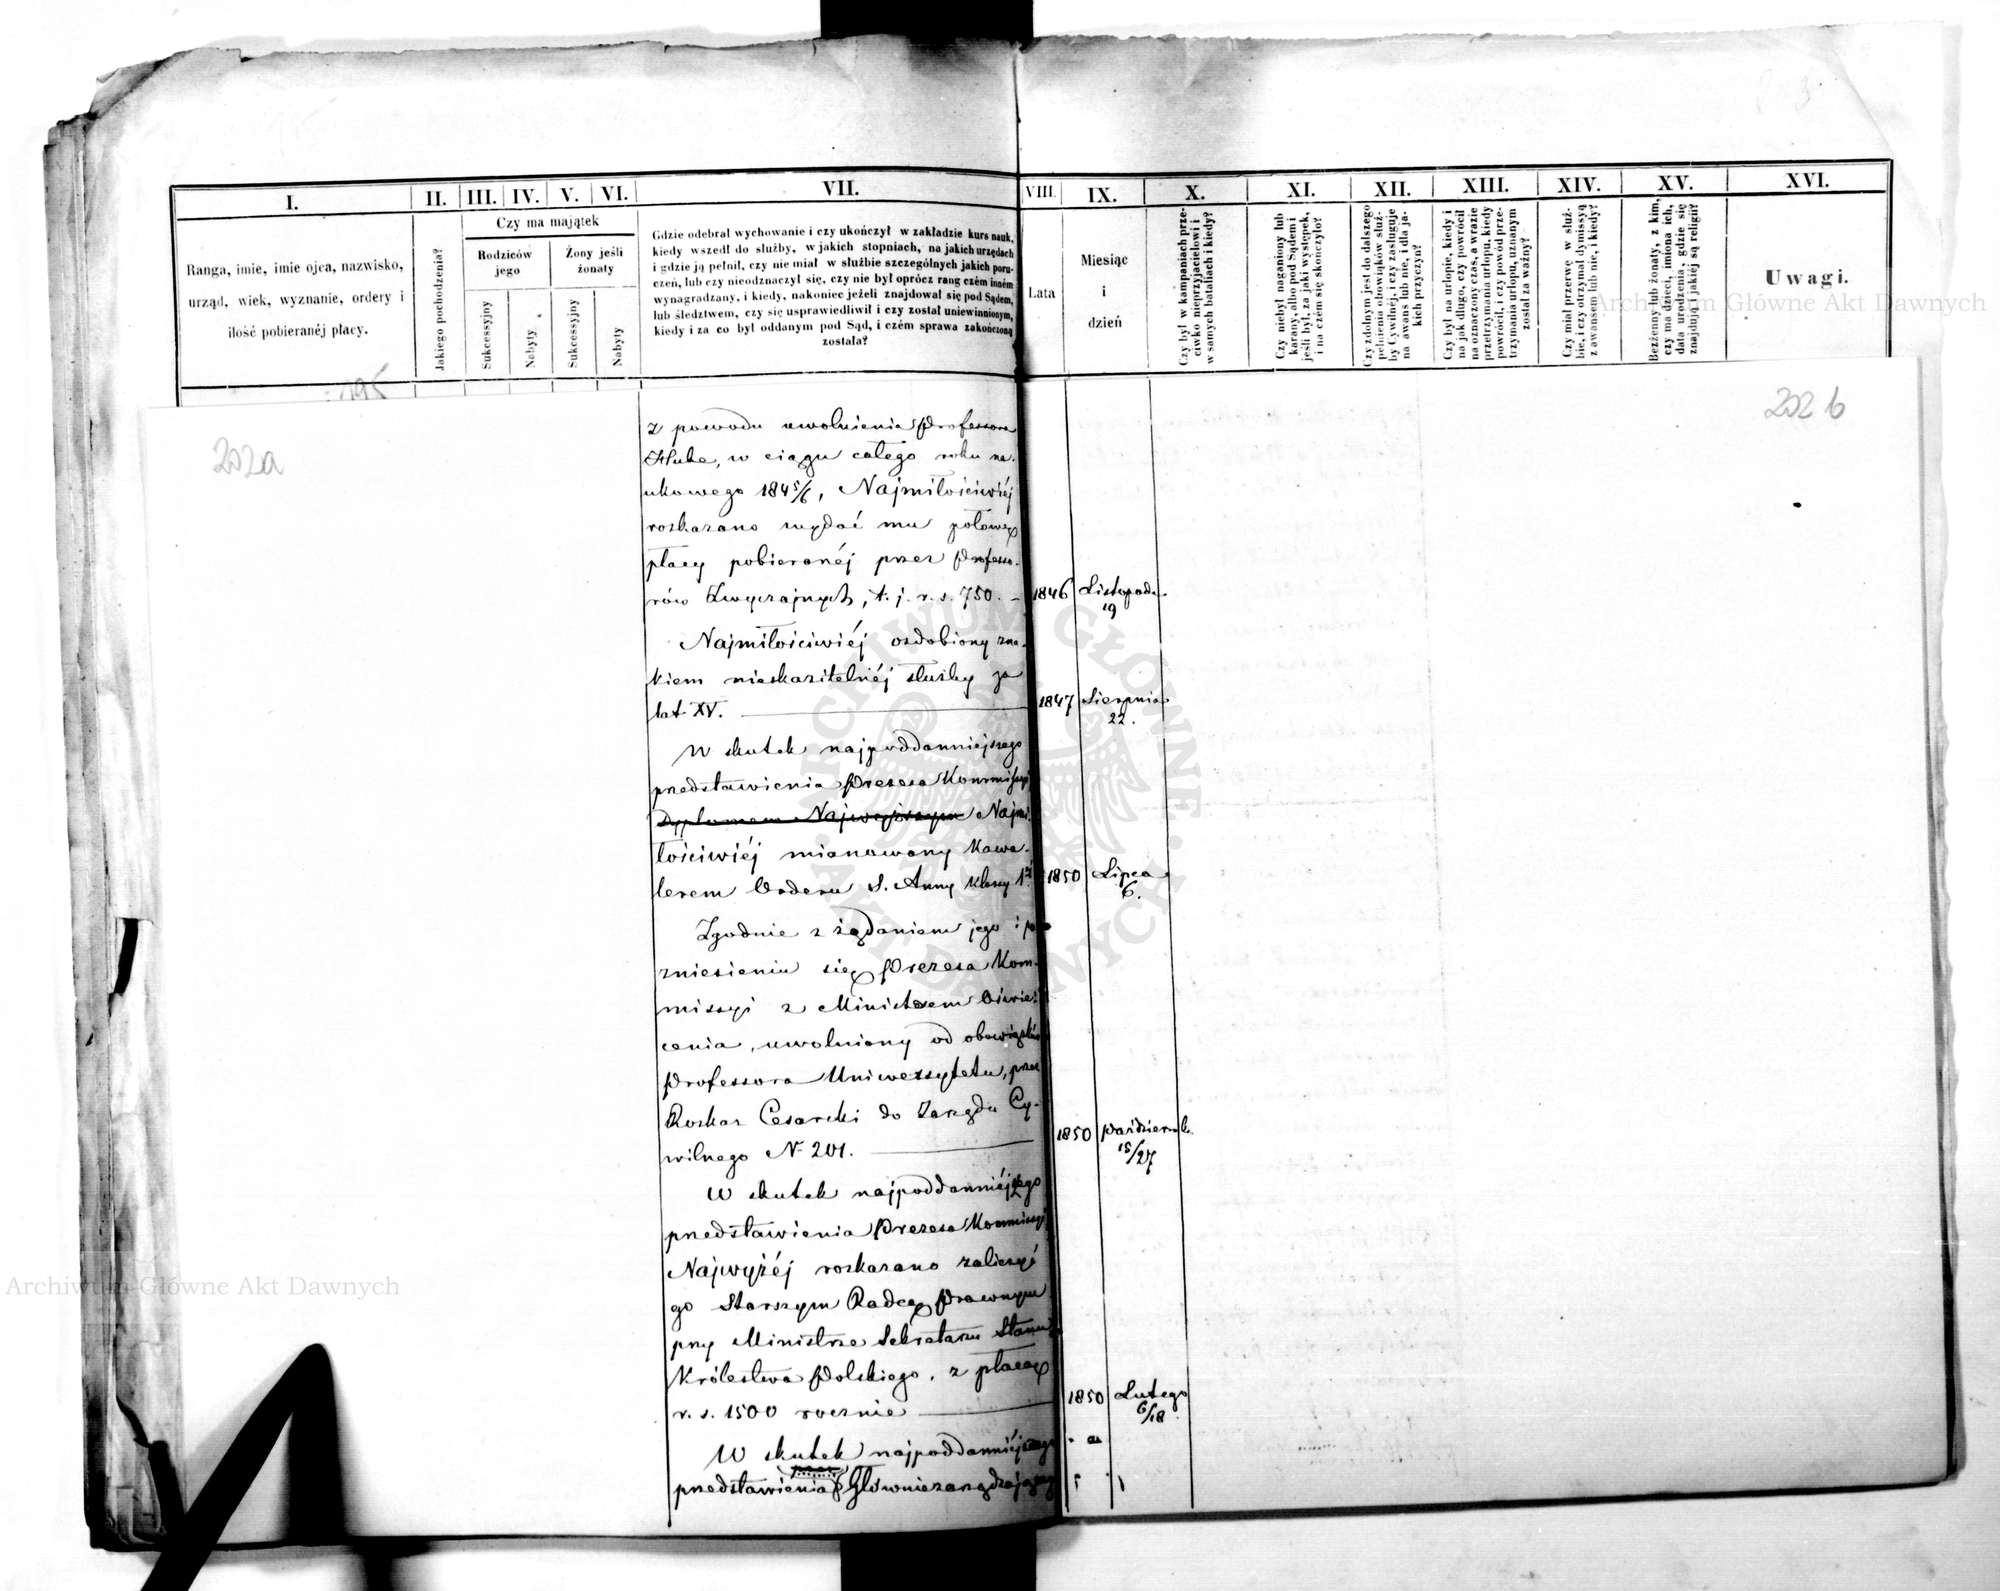 202a
202 b
195
I.
II.
III.
IV.
V.
VI.
VII.
VIII.
IX.
X.
XI.
XII.
XIII.
XIV.
XV.
XVI.
Ranga, imie, imie ojca, nazwisko,
urząd, wiek, wyznanie, ordery i
ilość pobieranéj płacy.
Jakiego pochodzenia?
Czy ma majątek
Rodziców
jego
Żony jeśli
żonaty
Sukcessyjny
Nabyty
Sukcessyjny
Nabyty
Gdzie odebrał wychowanie i czy ukończył w zakładzie kurs nauk,
kiedy wszedł do służby, w jakich stopniach, na jakich urzędach
i gdzie ją pełnił, czy nie miał w służbie szczególnych jakich poru-
czeń, lub czy nieodznaczył się, czy nie był oprócz rang czém inném
wynagradzany, i kiedy, nakoniec jeżeli znajdował się pod Sądem,
lub śledztwem, czy się usprawiedliwił i czy został uniewinnionym,
kiedy i za co był oddanym pod Sąd, i czém sprawa zakończoną
została?
Lata
Miesiąc
i
dzień
Czy był w kampaniach prze-
ciwko nieprzyjacielowi i
w samych bataliach i kiedy?
Czy niebył naganiony lub
karany, albo pod Sądem i
jeśli był, za jaki występek,
i na czém się skończyło?
Czy zdolnym jest do dalszego
pełnienia obowiąków służ-
by Cywilnéj, i czy zasługuje
na awans lub nie, i dla ja-
kich przyczyn?
Czy był na urlopie, kiedy i
na jak długo, czy powrócił
na oznaczony czas, a w razie
przetrzymania urlopu, kiedy
powrócił, i czy powód prze-
trzymania urlopu, uznanym
został za ważny?
Czy miał przerwę w służ-
bie, i czy otrzymał dymissyą
z awansem lub nie, i kiedy?
Bezżenny lub żonaty, z kim,
czy ma dzieci, imiona ich,
data urodzenia, gdzie się
znajdują i jakiéj są religii?
Uwagi.
z powodu uwolnienia Professora
Hube, w ciągu całego roku na-
ukowego 184 5/6, Najmiłościwiéj
rozkazano wydać mu połowę
płacy pobieranéj przez Professo-
rów Zwyczajnych, t. j. r. s. 750. –
1846 Listopada
19
Najmiłościwiéj ozdobiony zna-
kiem nieskazitelnéj służby za
lat XV.
1847 Sierpnia
22.
W skutek najpoddanniejszego
przedstawienia Prezesa Kommissyi
Dyplomem Najwyższym Najmi-
łościwiéj mianowany Kawa-
lerem Orderu S. Anny klassy 1éj
1850 Lipca
6.
Zgodnie z żądaniem jego i po
zniesieniu się Prezesa Kom-
missyi z Ministrem Oświe-
cenia, uwolniony od obowiązków
Professora Uniwersytetu, przez
Rozkaz Cesarski do Zarządu Cy-
wilnego N 201.
1850 Październik.
15/27
W skutek najpoddanniéjszego
przedstawienia Prezesa Kommissyi
Najwyżéj rozkazano zaliczyć
go Starszym Radcą Prawnym
przy Ministrze Sekretarzu Stanu
Królestwa Polskiego, z płacą
r. s. 1500 rocznie
1850 Lutego
6/18
W skutek najpoddanniéjszego
przedstawienia Główniezarządzającego
ARCHIWUM GŁÓWNE AKT DAWNYCH
Archiwum Główne Akt Dawnych
Archiwum Główne Akt Dawnych